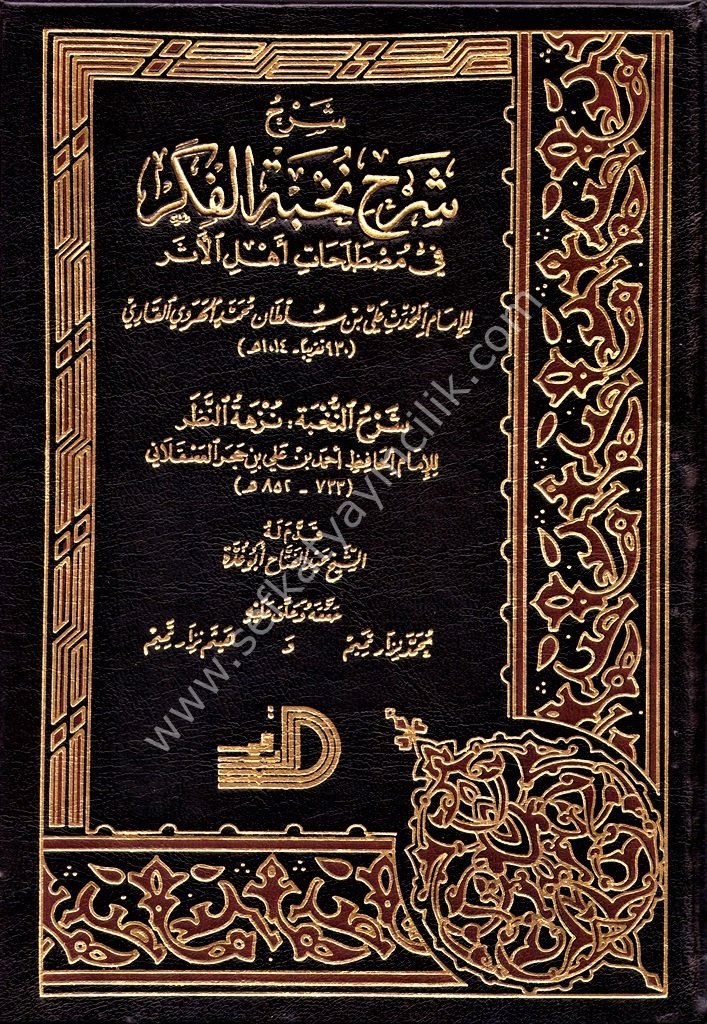 شَرْحُ
شَرْحِ نُخْبَةِ الفِكَرِ
فِي مُصْطَلَحَاتِ أَهْلِ الأَثَرِ
للإمام المحدّث علي بن سُلطان محمّد الهَروي القاري
(٩٣٠ تقريباً - ١٠١٤هـ)
شَرْحُ النُّخْبَة: نُزْهَةُ النَّظَر
للإمام الحافظ أحمد بن علي بن حجر العسقلاني
(٧٧٣ - ٨٥٢ هـ)
قَدَّمَ لَهُ
الشيخ عبد الفتاح أبو غُدَّة
حققه وعلّق عليه
محمّد نزار تميم و هيثم نزار تميم
www.sefkatyayincilik.com